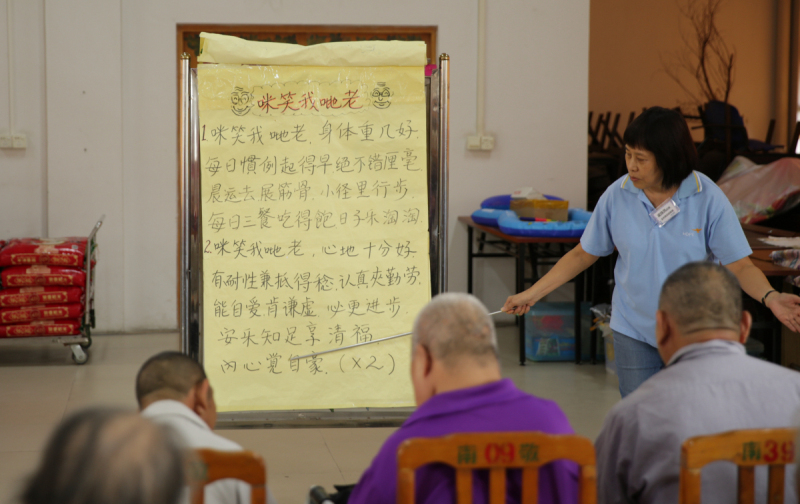 咪笑我哋老
1.咪笑我哋老,身体重几好
每日慣例起得早绝不谐厘毫
晨运去展筋骨.小径里行步
每日三餐吃得飽日子乐淘淘.
2.咪笑我哋老,心地十分好
有耐性兼抵得棯,认真夾勤劳,
能自爱肯谦虚 必更进步.
安乐知足享清福
内心覚自豪.(×2)
南09敬
南39